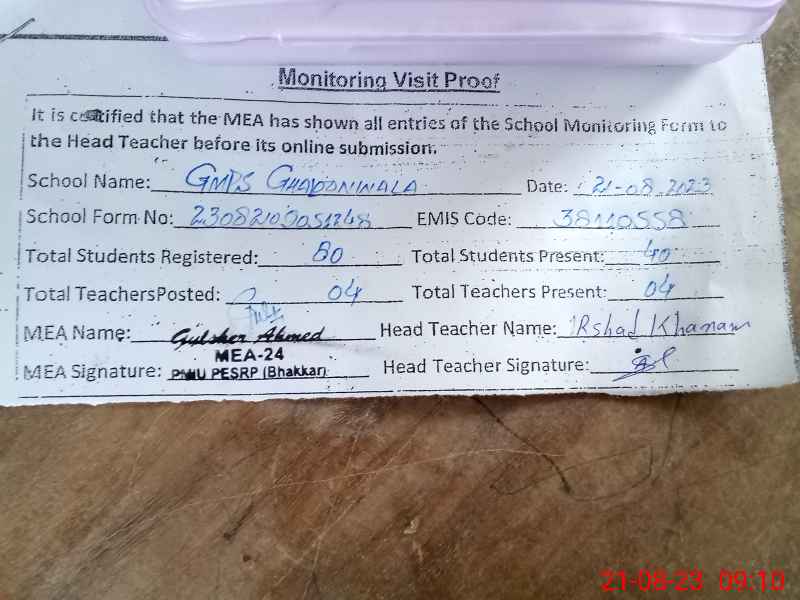 Monitoring Visit Proof
It is certified that the MEA has shown all entries of the School Monitoring Form to
the Head Teacher before its online submission.
School Name: GMPS Date: 21-08-2023
School Form No: EMIS Code: 38110558
Total Students Registered: 80 Total Students Present: 40
Total TeachersPosted: 04 Total Teachers Present: 04
MEA Name: Gulsher Ahmed Head Teacher Name: IRshad Khanam
MEA-24
MEA Signature: PMIU PESRP (Bhakkar) Head Teacher Signature:
21-08-23 09:10